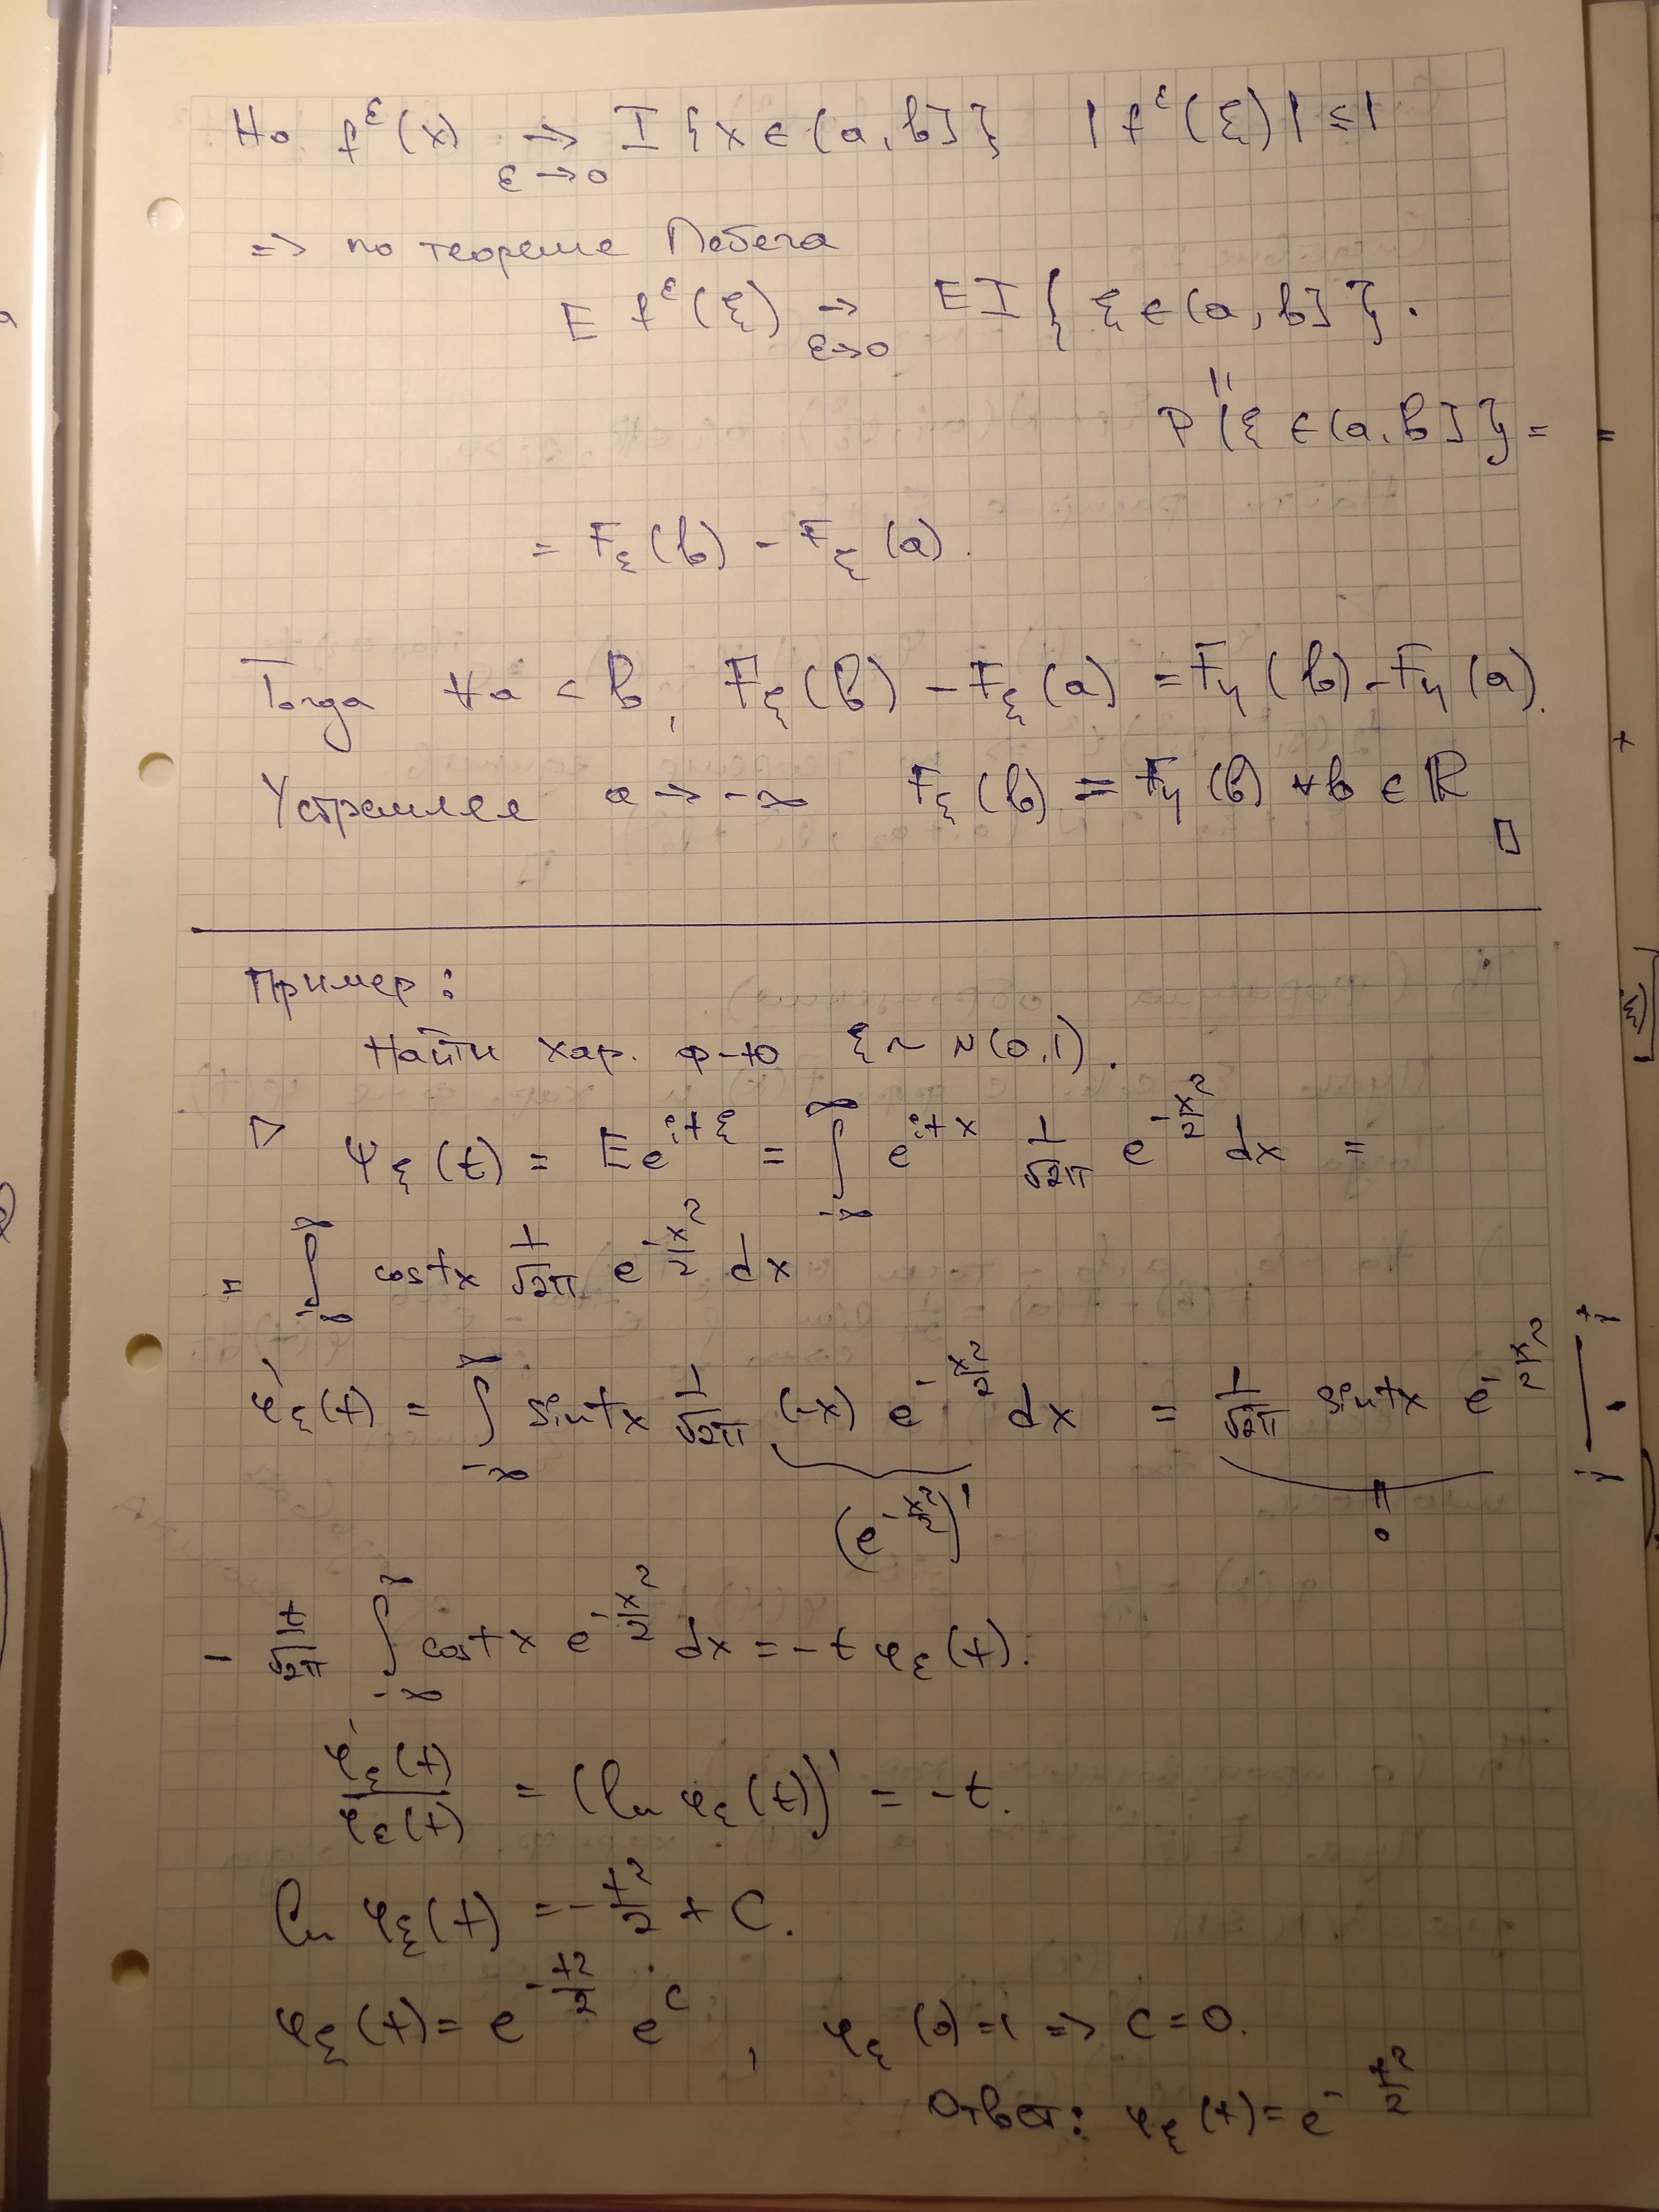 Но f^ε(x) → I{x ∈ (a, b]} |f^ε(ξ)| ≤ 1
ε → 0
=> по теореме Лебега
E f^ε(ξ) → E I{ξ ∈ (a, b]}.
ε→0
"
P{ξ ∈ (a, b]} =
= F_ξ(b) - F_ξ(a).
Тогда ∀a < b, F_ξ(b) - F_ξ(a) = F_η(b) - F_η(a).
Устремляя a → -∞ F_ξ(b) = F_η(b) ∀b ∈ ℝ
□
Пример:
Найти хар. ф-ю ξ ~ N(0,1).
▷ φ_ξ(t) = E e^{itξ} = ∫_{-∞}^{∞} e^{itx} 1/√2π e^{-x²/2} dx =
= ∫_{-∞}^{∞} cos tx 1/√2π e^{-x²/2} dx
φ'_ξ(t) = ∫_{-∞}^{∞} sin tx 1/√2π (-x) e^{-x²/2} dx = 1/√2π sin tx e^{-x²/2} |_{-∞}^{+∞}
(e^{-x²/2})' = 0
- t/√2π ∫_{-∞}^{∞} cos tx e^{-x²/2} dx = -t φ_ξ(t).
φ'_ξ(t)/φ_ξ(t) = (ln φ_ξ(t))' = -t.
ln φ_ξ(t) = -t²/2 + C.
φ_ξ(t) = e^{-t²/2} · e^C, φ_ξ(0) = 1 => C = 0.
Ответ: φ_ξ(t) = e^{-t²/2}